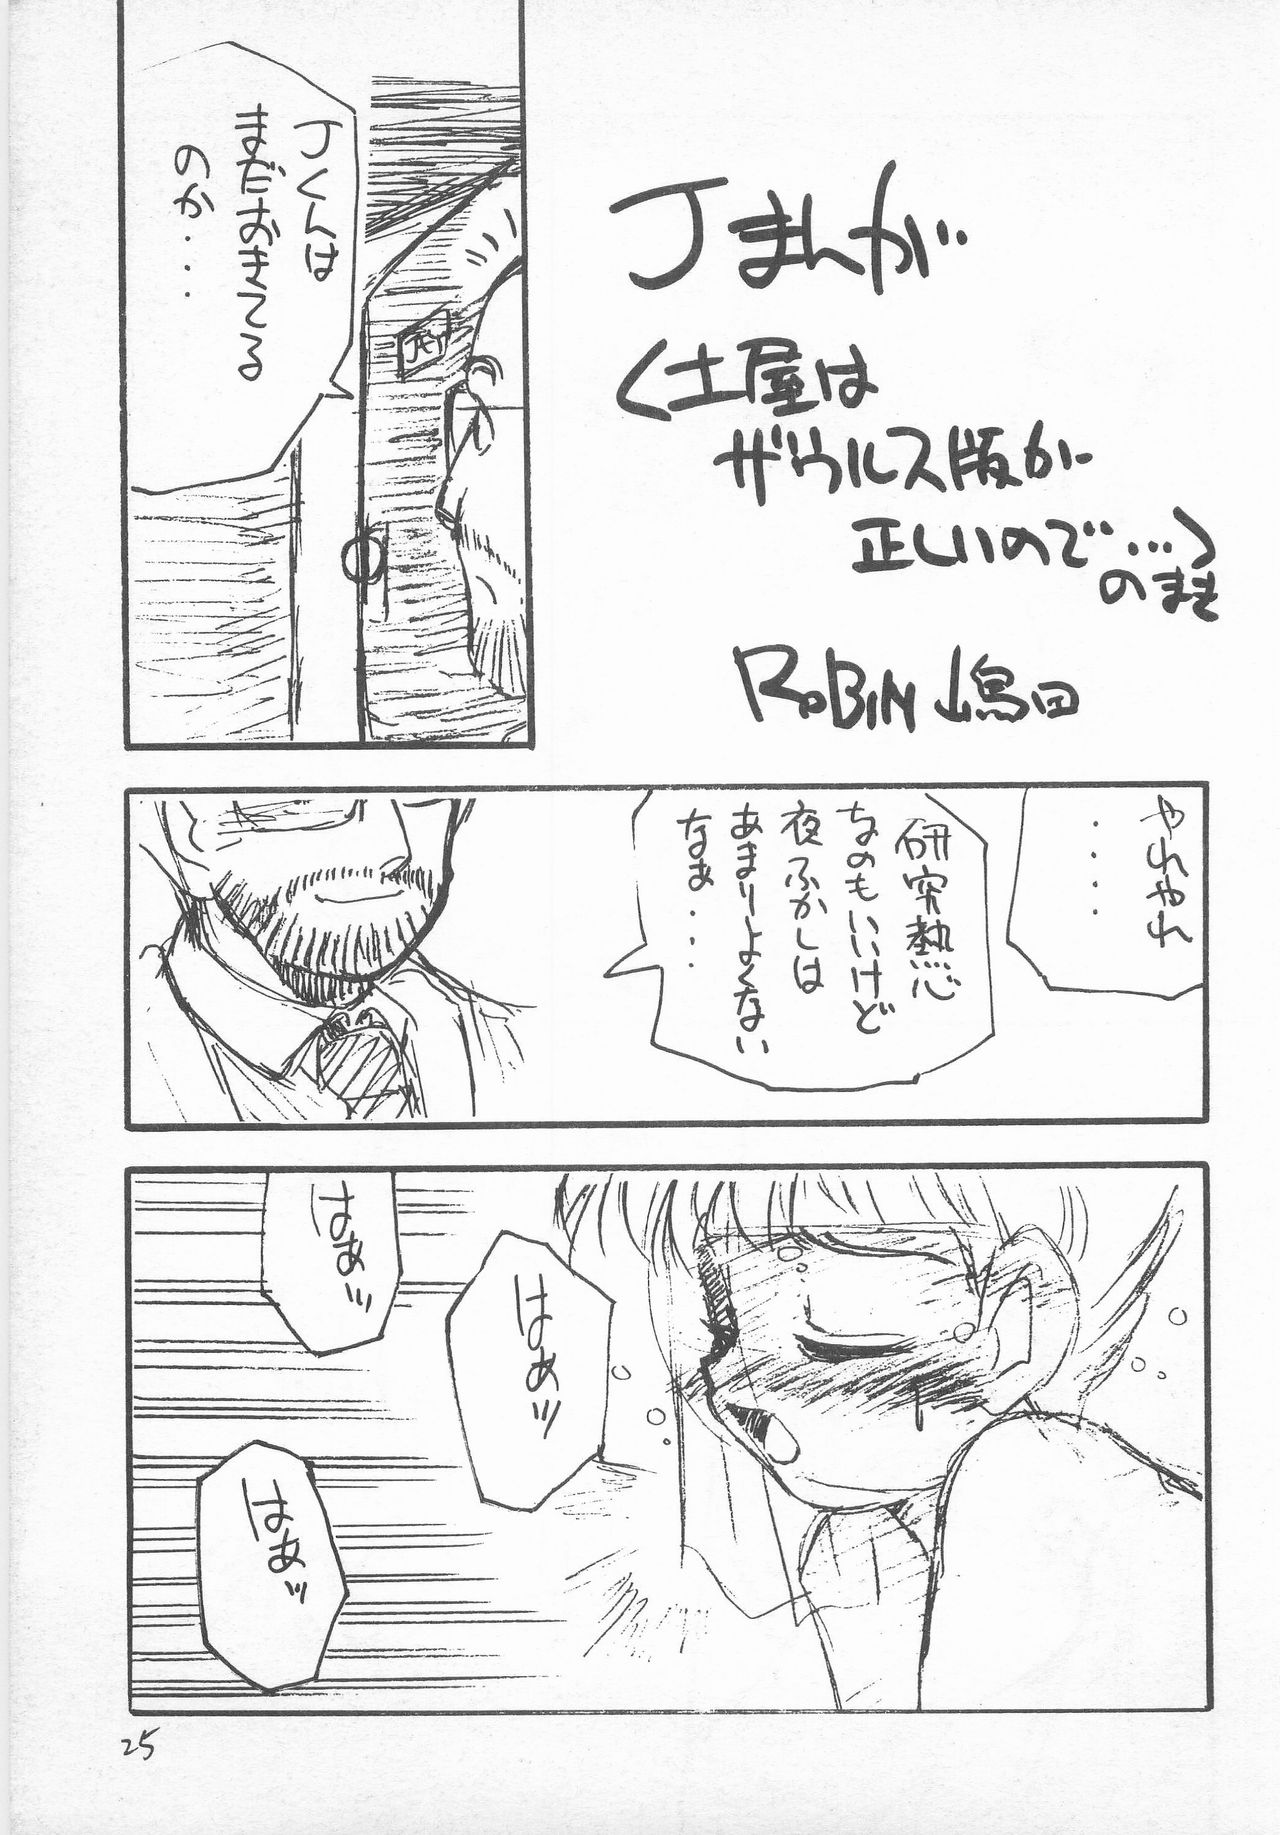 Jまんが
(土屋は
ザウルス版が
正しいので…)
のまき
ROBIN 嶋田
Jくんは
まだおきてる
のか・・・
JEY
やれやれ
・・・・
研究熱心
なのもいいけど
夜ふかしは
あまりよくない
なぁ・・・
はぁッ
はぁッ
はぁッ
25